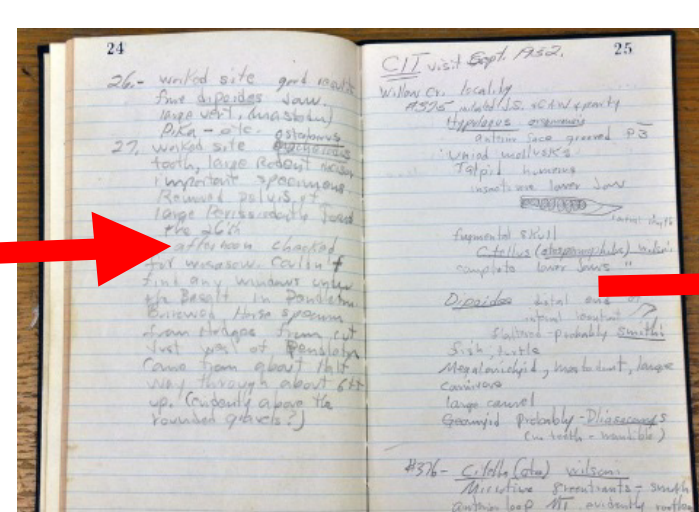 24
26.- worked site good results
fine dipoides Jaw.
large vert. (mastodon)
Pika - etc.
27. worked site
tooth, large Rodent incisor
important specimens.
Removed pelvis of
large Perissodactyl found
the 26th
afternoon checked
for windsow. Couldn't
find any windows under
the Basalt in Pendleton
Borrowed Horse specimen
from Hodges from cut
Just west of Pendleton
Came from about half
way through about 6ft
up. (evidently above the
rounded gravels?)
25
CIT visit Sept. 1952.
Willow Cr. locality
#375
Hypolagus
anterior face grooved P3
Uniod mollusks
Talpid humerus
insectivore lower Jaw
fragmental skull
Citellus
complete lower Jaws "
Dipoides distal end of
flattened - probably smithi
fish, turtle
Megalonichid, mastodont, large
carnivore
large camel
Geomyid Probably - Pliosaccomys
(no teeth - mandible)
#376 - Citellus (oto) wilsoni
Microtine
anterior loop M1 evidently